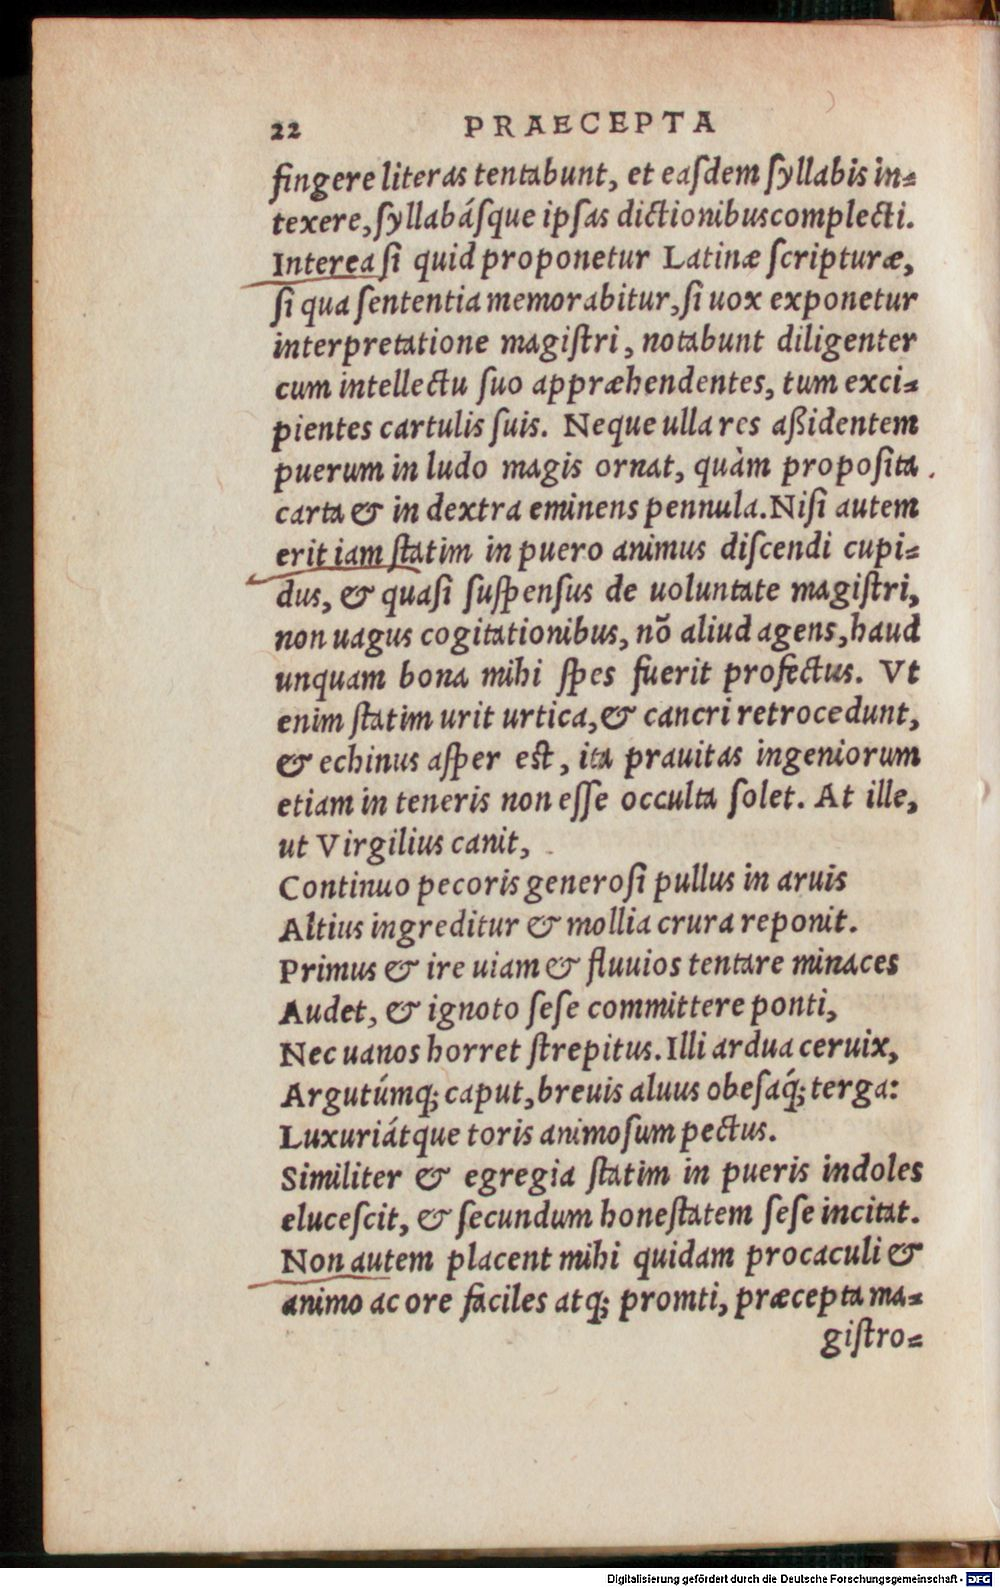 22 PRAECEPTA
fingere literas tentabunt, et eaſdem ſyllabis in⸗
texere, ſyllabáſque ipſas dictionibus complecti.
Interea ſi quid proponetur Latinæ ſcripturæ,
ſi qua ſententia memorabitur, ſi uox exponetur
interpretatione magiſtri, notabunt diligenter
cum intellectu ſuo appræhendentes, tum exci⸗
pientes cartulis ſuis. Neque ulla res aßidentem
puerum in ludo magis ornat, quàm propoſita
carta & in dextra eminens pennula. Niſi autem
erit iam ſtatim in puero animus diſcendi cupi⸗
dus, & quaſi ſuſpenſus de uoluntate magiſtri,
non uagus cogitationibus, nõ aliud agens, haud
unquam bona mihi ſpes fuerit profectus. Vt
enim ſtatim urit urtica, & cancri retrocedunt,
& echinus aſper eſt, ita prauitas ingeniorum
etiam in teneris non eſſe occulta ſolet. At ille,
ut Virgilius canit,
Continuo pecoris generoſi pullus in aruis
Altius ingreditur & mollia crura reponit.
Primus & ire uiam & fluuios tentare minaces
Audet, & ignoto ſeſe committere ponti,
Nec uanos horret ſtrepitus. Illi ardua ceruix,
Argutúmq; caput, breuis aluus obeſaq́; terga:
Luxuriátque toris animoſum pectus.
Similiter & egregia ſtatim in pueris indoles
eluceſcit, & ſecundum honeſtatem ſeſe incitat.
Non autem placent mihi quidam procaculi &
animo ac ore faciles atq; promti, præcepta ma⸗
giſtro⸗
Digitalisierung gefördert durch die Deutsche Forschungsgemeinschaft - DFG